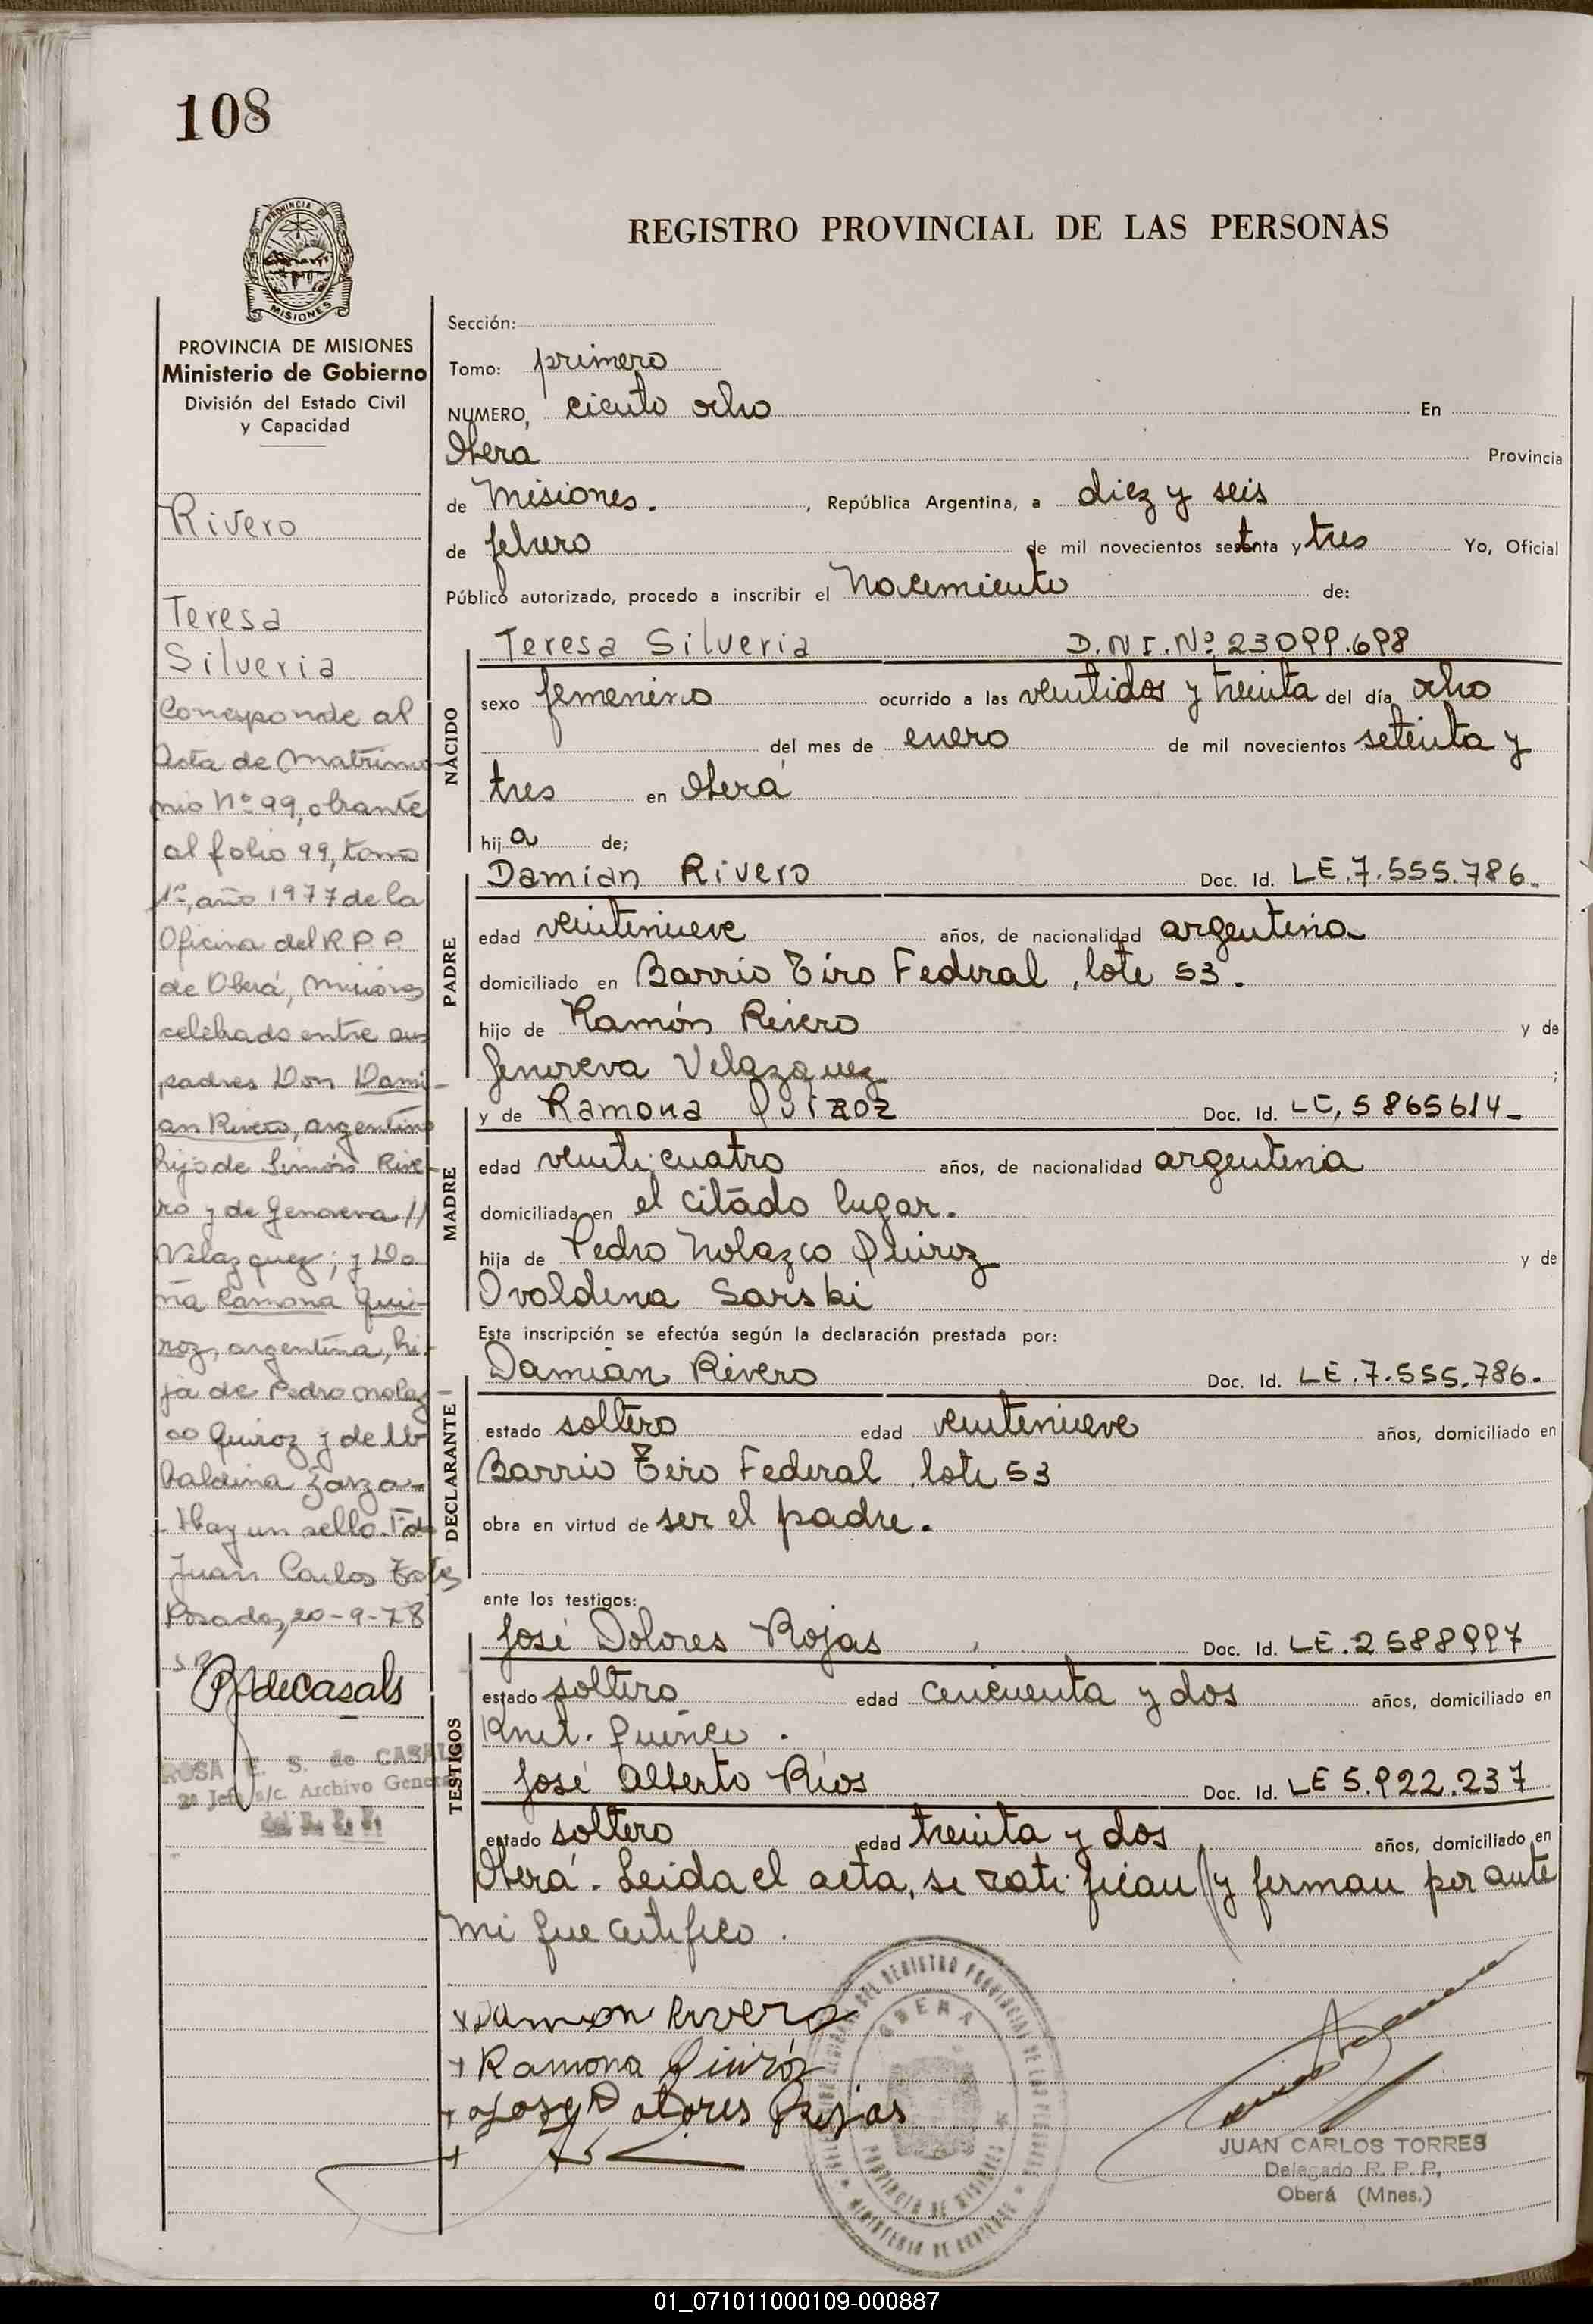 108
PROVINCIA DE MISIONES
MISIONES
PROVINCIA DE MISIONES
Ministerio de Gobierno
División del Estado Civil
y Capacidad
Rivero
Teresa
Silveria
Corresponde al
Acta de Matrimo-
nio Nº 99, obrante
al folio 99, tomo
1º, año 1977 de la
Oficina del R.P.P.
de Oberá, Misiones
celebrado entre sus
padres Don Dami-
an Rivero, argentino
hijo de Simón Rive-
ro y de Genoveva //
Velazquez; y Do
ña Ramona Qui-
roz, argentina, hi-
ja de Pedro Nolaz-
co Quiroz y de Ub
baldina Zarza-
- Hay un sello. Fdo
Juan Carlos
Posadas, 20-9-78
RdeCasals
ROSA E. S. de CASALS
2ª Jefe s/c. Archivo General
del R. P. P.
REGISTRO PROVINCIAL DE LAS PERSONAS
Sección:
Tomo: primero
NUMERO, ciento ocho En
Oberá Provincia
de Misiones. , República Argentina, a diez y seis
de febrero de mil novecientos setenta y tres Yo, Oficial
Público autorizado, procedo a inscribir el Nacimiento de:
NACIDO
Teresa Silveria D.N.I.Nº 23099.698
sexo femenino ocurrido a las veintidos y treinta del día ocho
del mes de enero de mil novecientos setenta y
tres en Oberá
hija de;
PADRE
Damian Rivero Doc. Id. LE.7.555.786.
edad veintenueve años, de nacionalidad argentina
domiciliado en Barrio Tiro Federal, lote 53.
hijo de Ramón Rivero y de
Genoveva Velazquez ;
MADRE
y de Ramona Quiroz Doc. Id. LC, 5865614-
edad veinticuatro años, de nacionalidad argentina
domiciliada en el citado lugar.
hija de Pedro Nolazco Quiroz y de
Ovaldina Sarski
Esta inscripción se efectúa según la declaración prestada por:
DECLARANTE
Damián Rivero Doc. Id. LE.7.555.786.
estado soltero edad veintenueve años, domiciliado en
Barrio Tiro Federal, lote 53
obra en virtud de ser el padre.
ante los testigos:
TESTIGOS
José Dolores Rojas Doc. Id. LE.2588997
estado soltero edad cincuenta y dos años, domiciliado en
José Alberto Ríos Doc. Id. LE 5.922.237
estado soltero edad treinta y dos años, domiciliado en
Oberá. Leida el acta, se ratifican y firman por ante
mi que certifico.
x Damian Rivero
+ Ramona Quiróz
+ Jose Dolores Rojas
+
OBERA
PROVINCIA DE MISIONES
MINISTERIO DE GOBIERNO
JUAN CARLOS TORRES
Delegado R. P. P.
Oberá (Mnes.)
01_071011000109-000887